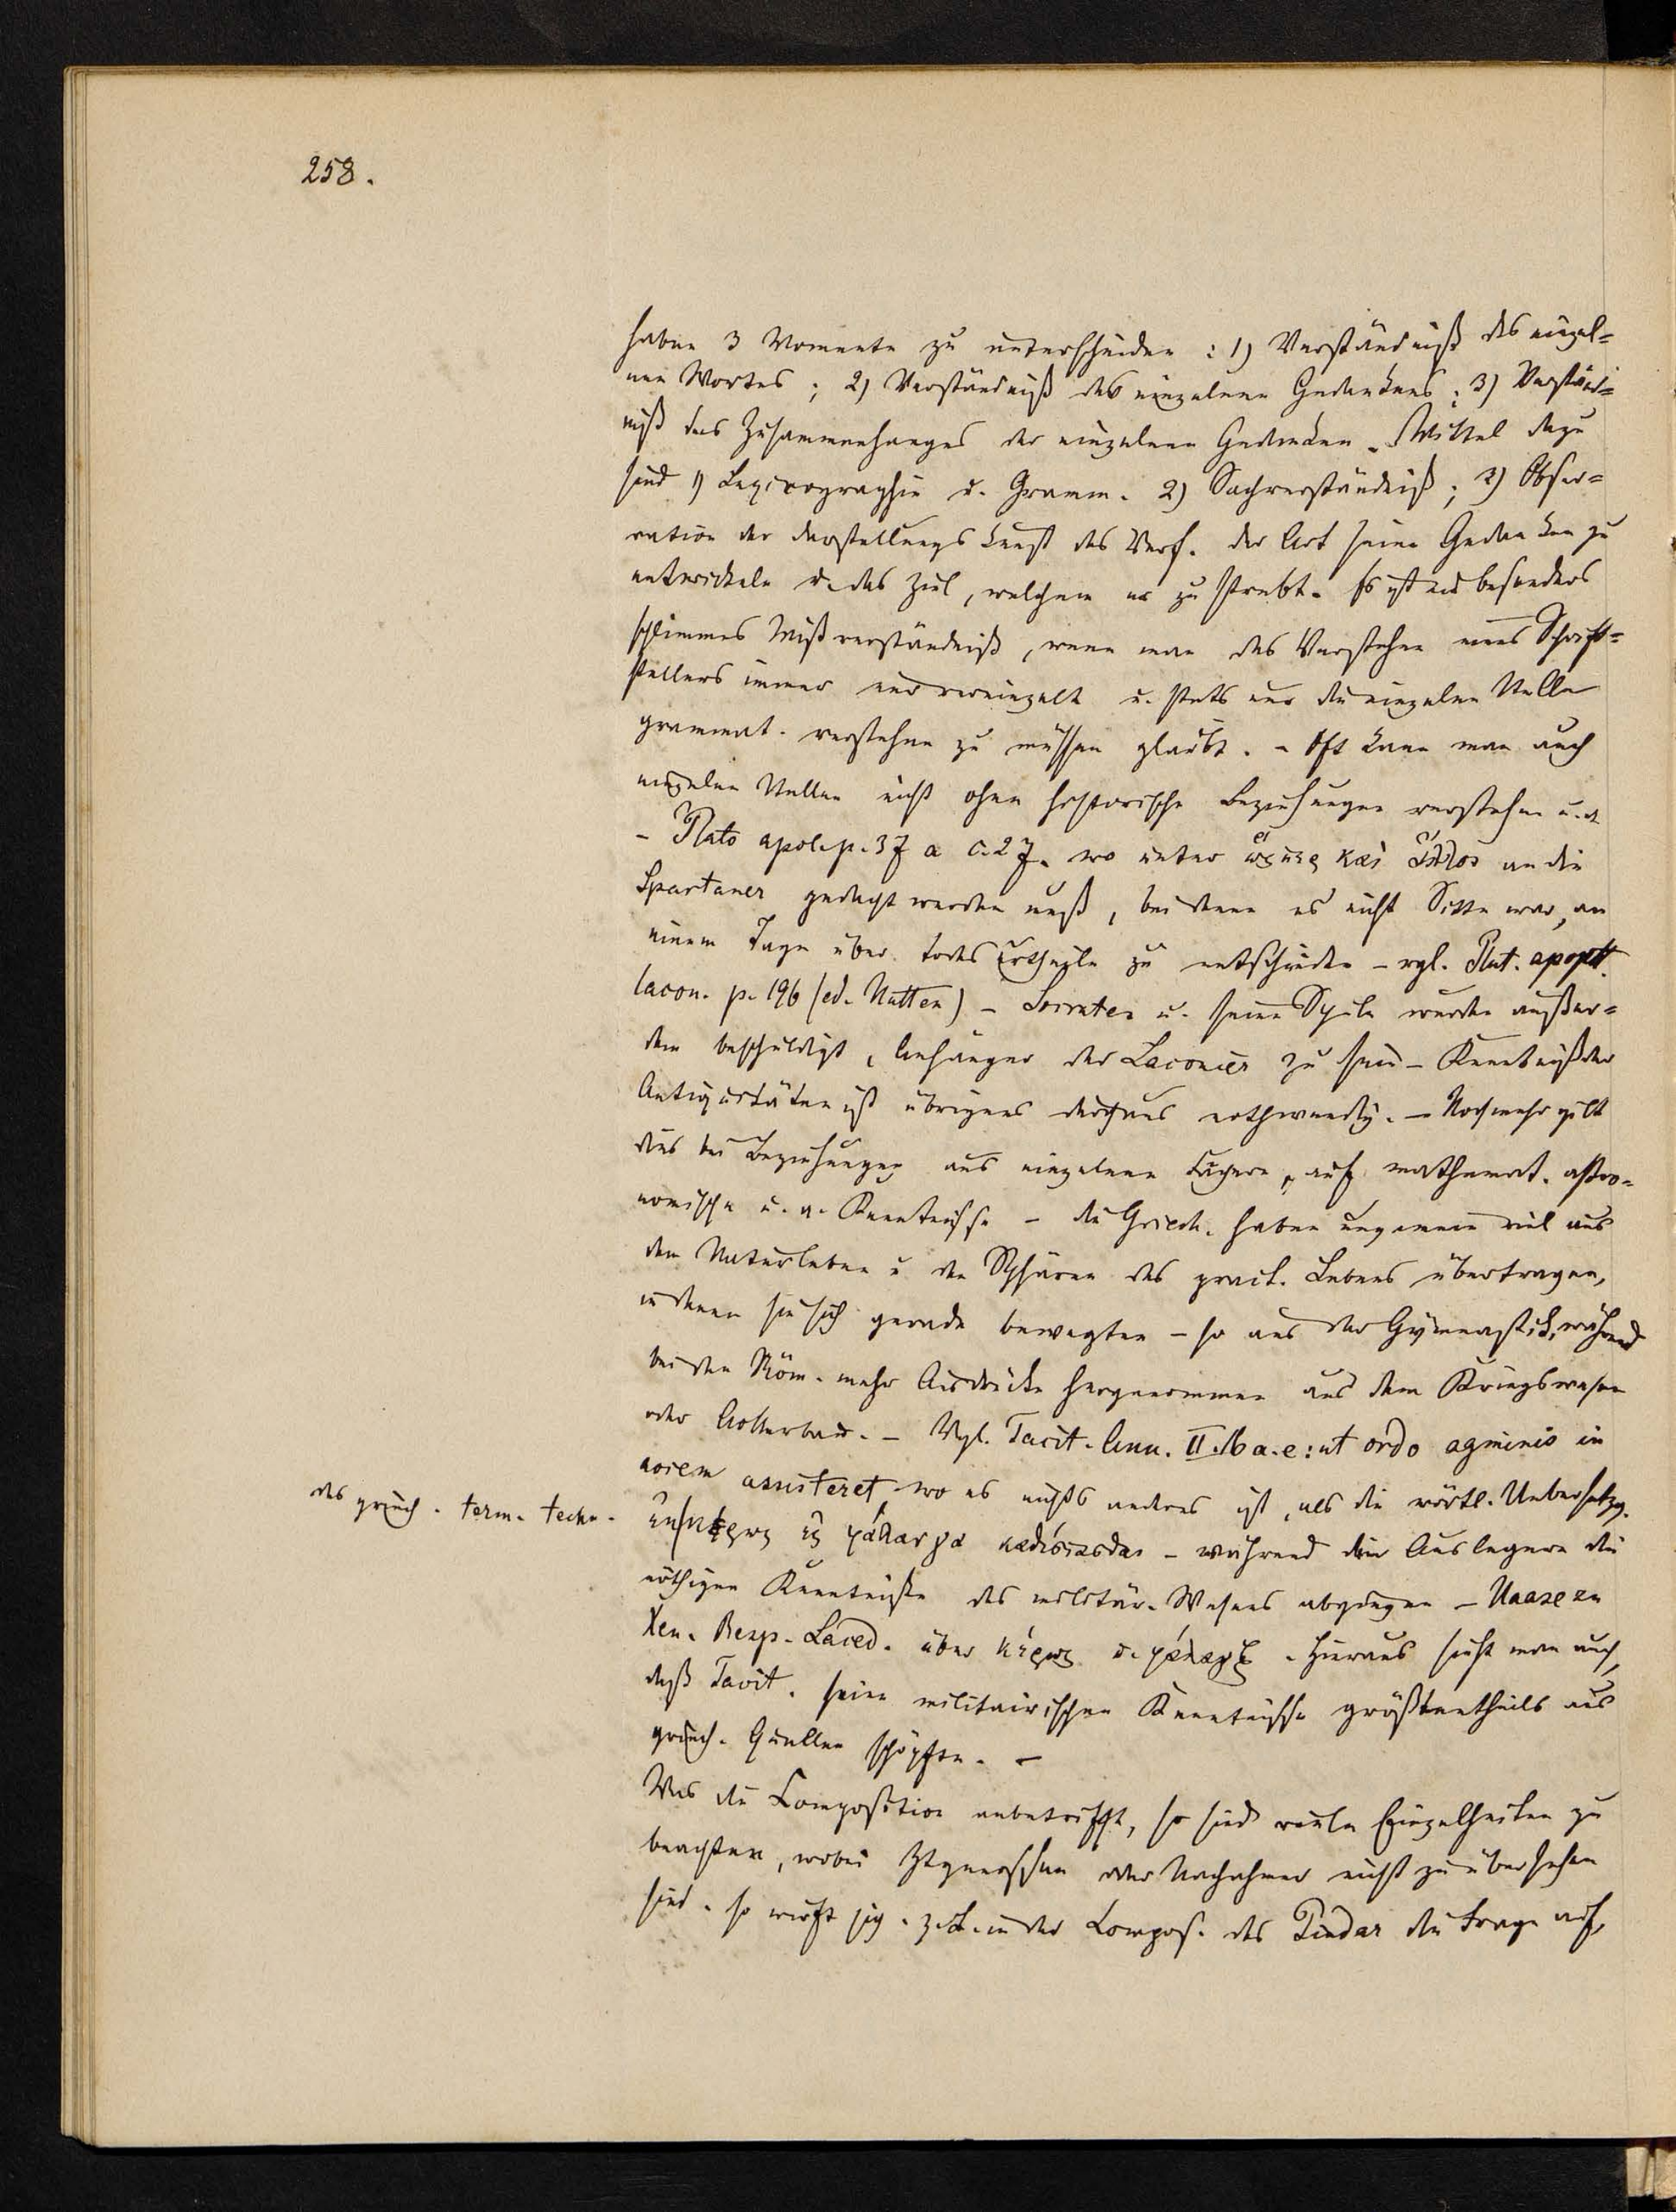 258.
haben 3 Momente zu unterscheiden : 1) Verständniß des einzel=
nen Wortes ; 2) Verständniß des einzelnen Gedankens ; 3) Verständ=
niß des Zusammenhanges der einzelnen Gedanken. Mittel dazu
sind 1) Lexicographie u. Gramm. 2) Sachverständniß ; 3) Obser=
vation der Darstellungskunst des Verf. der Art seine Gedanken zu
entwickeln u. das Ziel, welchem er zu strebt. Es ist ein besonders
schlimmes Mißverständniß, wenn man das Verstehen eines Schrift=
stellers immer nur vereinzelt u. stets nur die einzelne Stelle
grammat. verstehen zu müssen glaubt. – Oft kann man auch
einzelne Stellen nicht ohne historische Beziehungen verstehen
– Plato apol. p. 37 a c. 27. wo unter ὥσπερ καὶ ἄλλοις an die
Spartaner gedacht werden muß, bei denen es nicht Sitte war, an
einem Tage über Todesurtheile zu entscheiden – vgl. Plut. apopht.
lacon. p. 196 (ed. Hutten) – Socrates u. seine Schule wurden außer=
dem beschuldigt, Anhänger der Laconier zu sein – Kenntniß der
Antiquitäten ist übrigens durchaus nothwendig. – Noch mehr gilt
dies bei Beziehungen aus einzelnen auf mathemat. astro=
nomische u. a. Kenntnisse – die Griech. haben ungemein viel aus
dem Naturleben u. den Sphären des pract. Lebens übertragen,
in denen sie sich gerade bewegten – so aus der Gymnastik, während
bei den Röm. mehr Ausdrücke hergenommen aus dem Kriegswesen
oder Ackerbau. – Vgl. Tacit. Ann. II. 16 a. e : ut ordo agminis in
aciem assisteret, wo es nichts anderes ist, als die wörtl. Uebersetzg.
des griech. term. techn.
ἐκ κέρως εἰς φάλαγγα καθίστασθαι – während den Auslegern die
nöthigen Kenntniße des militär. Wesens abgingen – Haase zu
Xen. Resp. Laced. über κέρως u. φάλαγξ. Hieraus sieht man auch,
daß Tacit. seine militairischen Kenntnisse größtentheils aus
griech. Quellen schöpfte. –
Was die Composition anbetrifft, so sind viele Einzelheiten zu
beachten, wobei Ztgenossen oder Nachahmer nicht zu übersehen
sind. So wirft sich z. B. in der Compos. des Pindar die Frage auf,